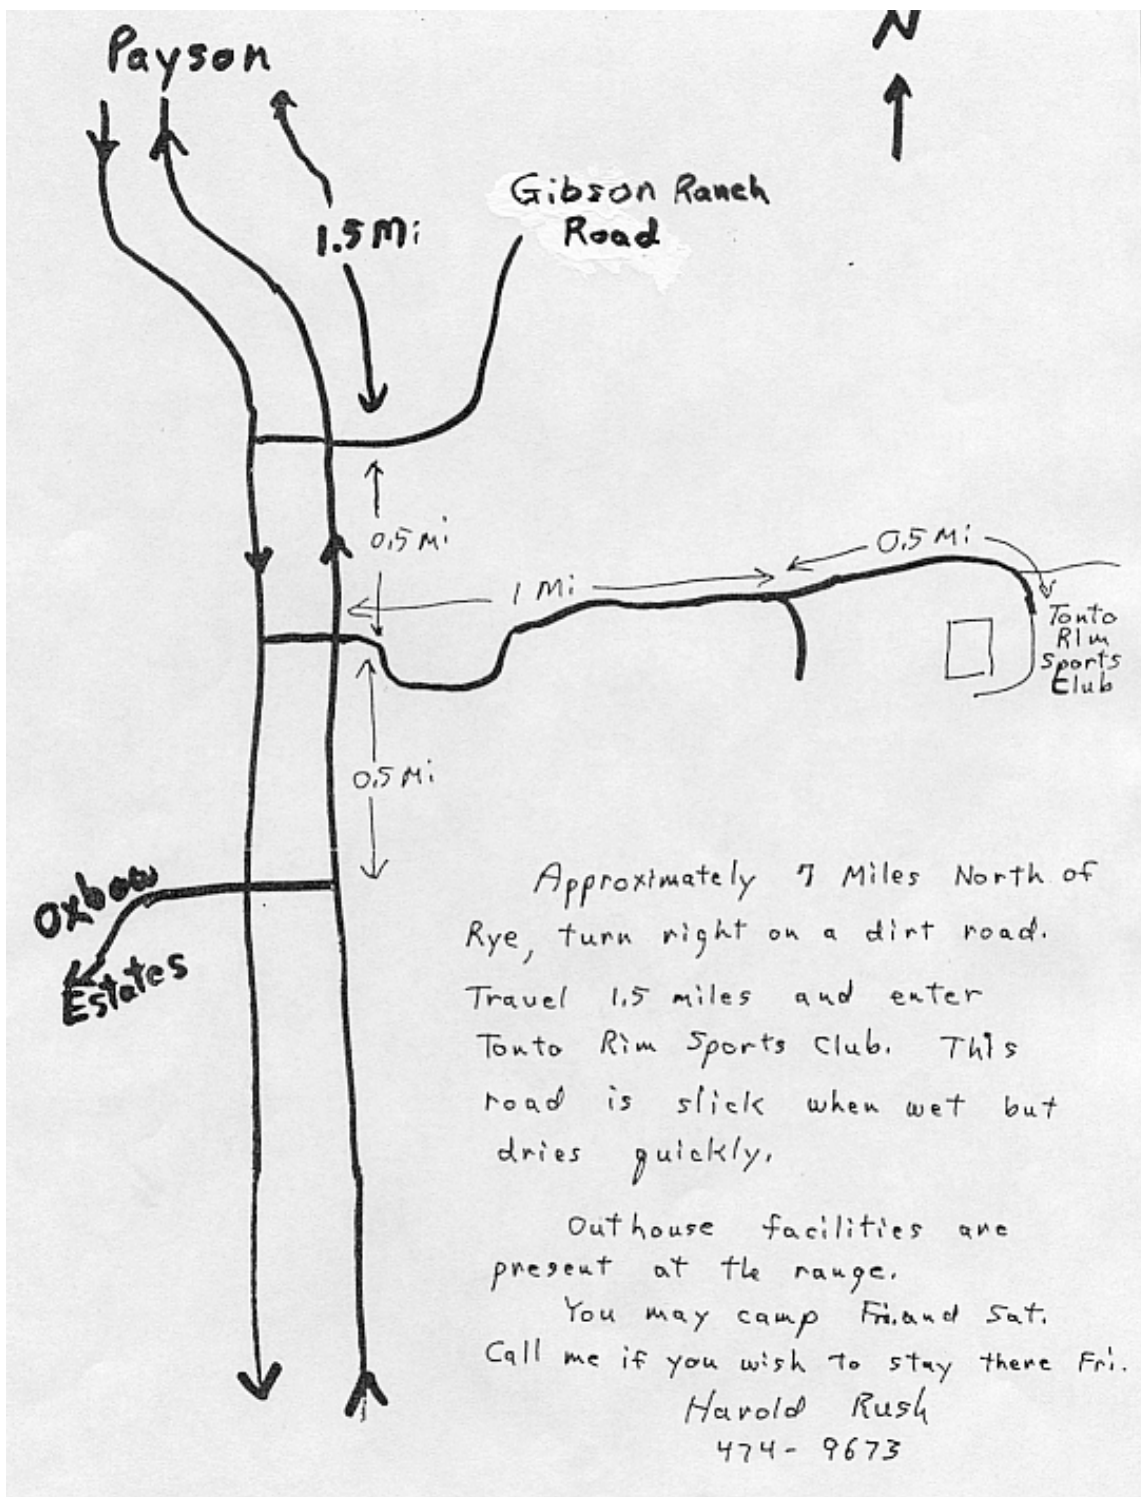 N
Payson
1.5 Mi
Gibson Ranch
Road
0.5 Mi
1 Mi
0.5 Mi
Tonto
Rim
Sports
Club
0.5 Mi
Oxbow
Estates
Approximately 7 Miles North of
Rye, turn right on a dirt road.
Travel 1.5 miles and enter
Tonto Rim Sports Club. This
road is slick when wet but
dries quickly.
Outhouse facilities are
present at the range.
You may camp Fri. and Sat.
Call me if you wish to stay there Fri.
Harold Rush
474-9673